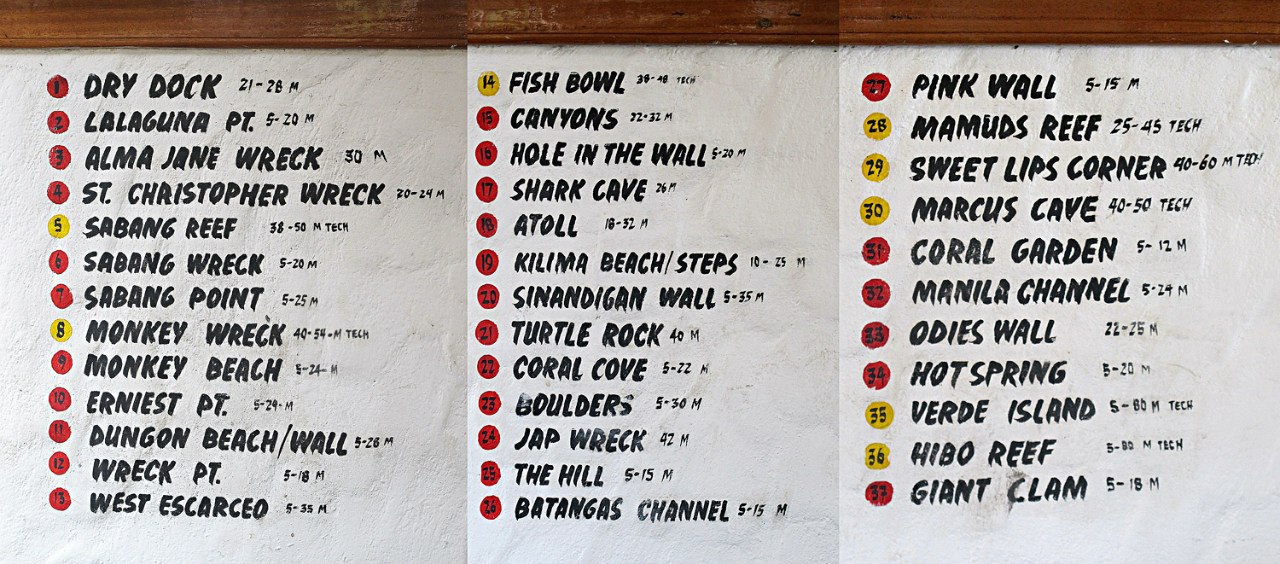 1 DRY DOCK 21-28 M
2 LALAGUNA PT. 5-20 M
3 ALMA JANE WRECK 30 M
4 ST. CHRISTOPHER WRECK 20-24 M
5 SABANG REEF 38-50 M TECH
6 SABANG WRECK 5-20 M
7 SABANG POINT 5-25 M
8 MONKEY WRECK 40-54-M TECH
9 MONKEY BEACH 5-24-M
10 ERNIEST PT. 5-24-M
11 DUNGON BEACH/WALL 5-28 M
12 WRECK PT. 5-18 M
13 WEST ESCARCEO 5-35 M
14 FISH BOWL 38-48 TECH
15 CANYONS 22-32 M
16 HOLE IN THE WALL 5-20 M
17 SHARK CAVE 26 M
18 ATOLL 18-32 M
19 KILIMA BEACH/STEPS 10-25 M
20 SINANDIGAN WALL 5-35 M
21 TURTLE ROCK 40 M
22 CORAL COVE 5-22 M
23 BOULDERS 5-30 M
24 JAP WRECK 42 M
25 THE HILL 5-15 M
26 BATANGAS CHANNEL 5-15 M
27 PINK WALL 5-15 M
28 MAMUDS REEF 25-45 TECH
29 SWEET LIPS CORNER 40-60 M TECH
30 MARCUS CAVE 40-50 TECH
31 CORAL GARDEN 5-12 M
32 MANILA CHANNEL 5-24 M
33 ODIES WALL 22-25 M
34 HOT SPRING 5-20 M
35 VERDE ISLAND 5-80 M TECH
36 HIBO REEF 5-80 M TECH
37 GIANT CLAM 5-18 M